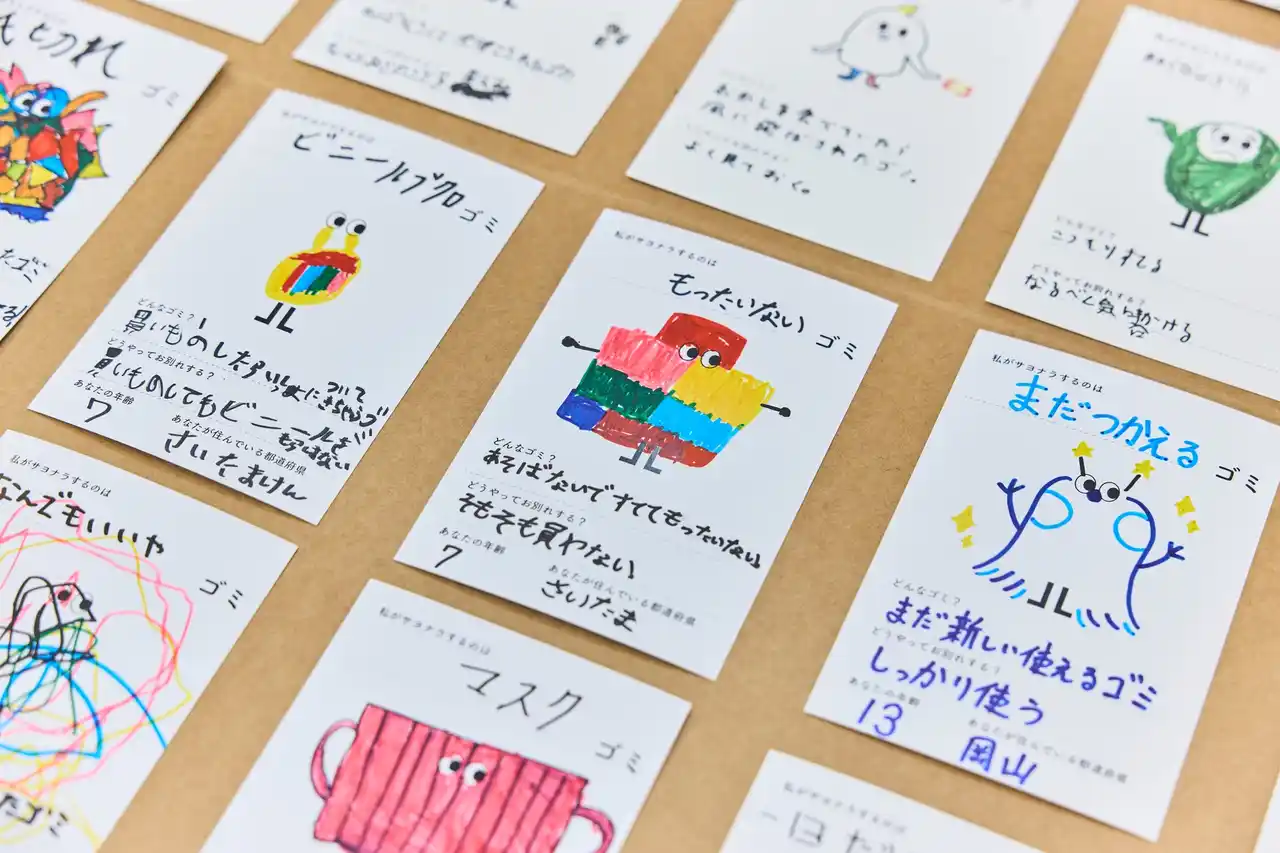 も切れ
ゴミ
たゴミ
私がサヨナラするのは
ビニールブクロ
ゴミ
どんなゴミ?
買いものしたらいっしょについてきちゃうゴミ
どうやってお別れする?
買いものしてもビニールを
もらわない
あなたの年齢
7
あなたが住んでいる都道府県
さいたまけん
風に飛ばされたゴミ。
よく見ておく。
どんなゴミ?
どうやってお別れする?
なるべく気に掛ける
私がサヨナラするのは
もったいない
ゴミ
どんなゴミ?
あそばないですててもったいない
どうやってお別れする?
そもそも買わない
あなたの年齢
7
あなたが住んでいる都道府県
さいたま
私がサヨナラするのは
まだつかえる
ゴミ
どんなゴミ?
まだ新しい使えるゴミ
どうやってお別れする?
しっかり使う
あなたの年齢
13
あなたが住んでいる都道府県
岡山
私がサヨナラするのは
なんでもいいや
ゴミ
たゴミ
私がサヨナラするのは
マスク
ゴミ
私がサヨナラするのは